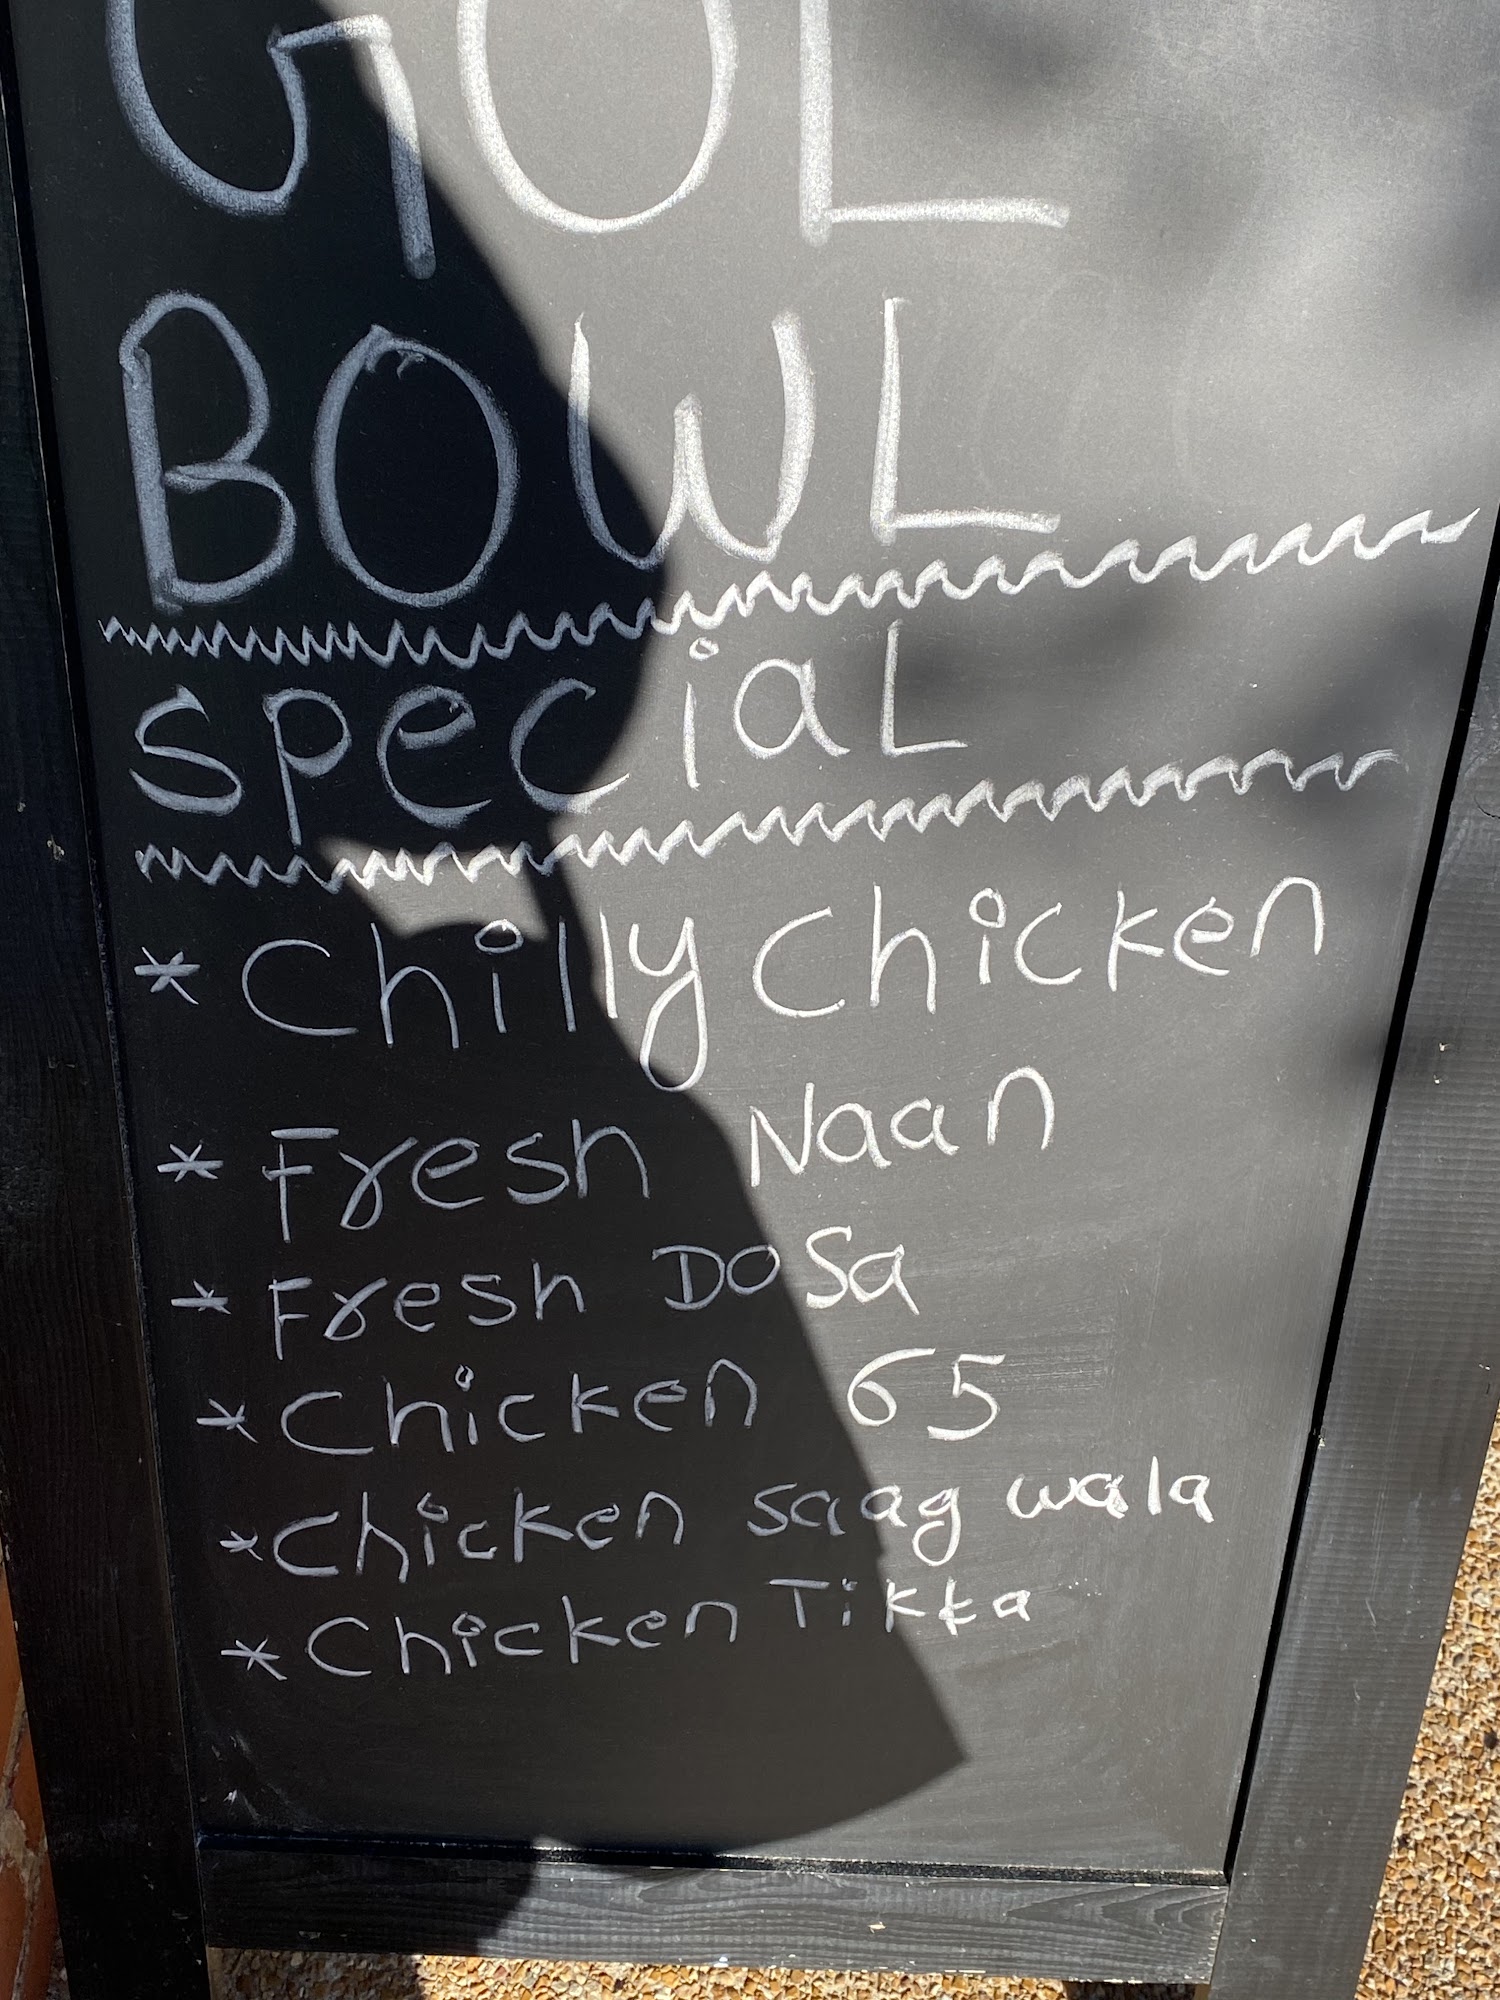 GOL
BOWL
SpeciaL
* Chilly Chicken
* Fresh Naan
* Fresh DOSa
* Chicken 65
* Chicken Saag wala
* Chicken Tikka